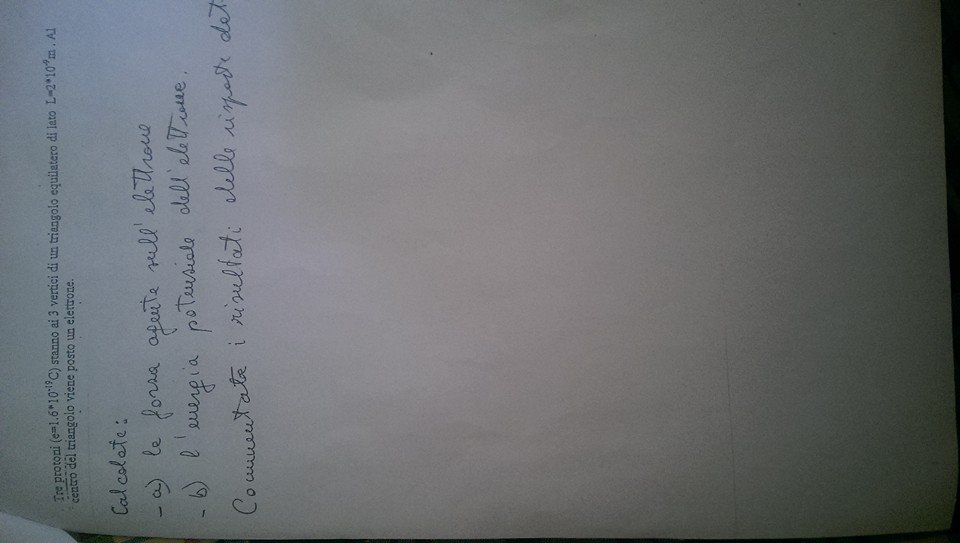 Tre protoni (e=1.6*10⁻¹⁹C) stanno ai 3 vertici di un triangolo equilatero di lato L=2*10⁻⁹m . Al
centro del triangolo viene posto un elettrone.
Calcolate:
- a) la forza agente sull'elettrone
- b) l'energia potenziale dell'elettrone.
Commentate i risultati delle risposte